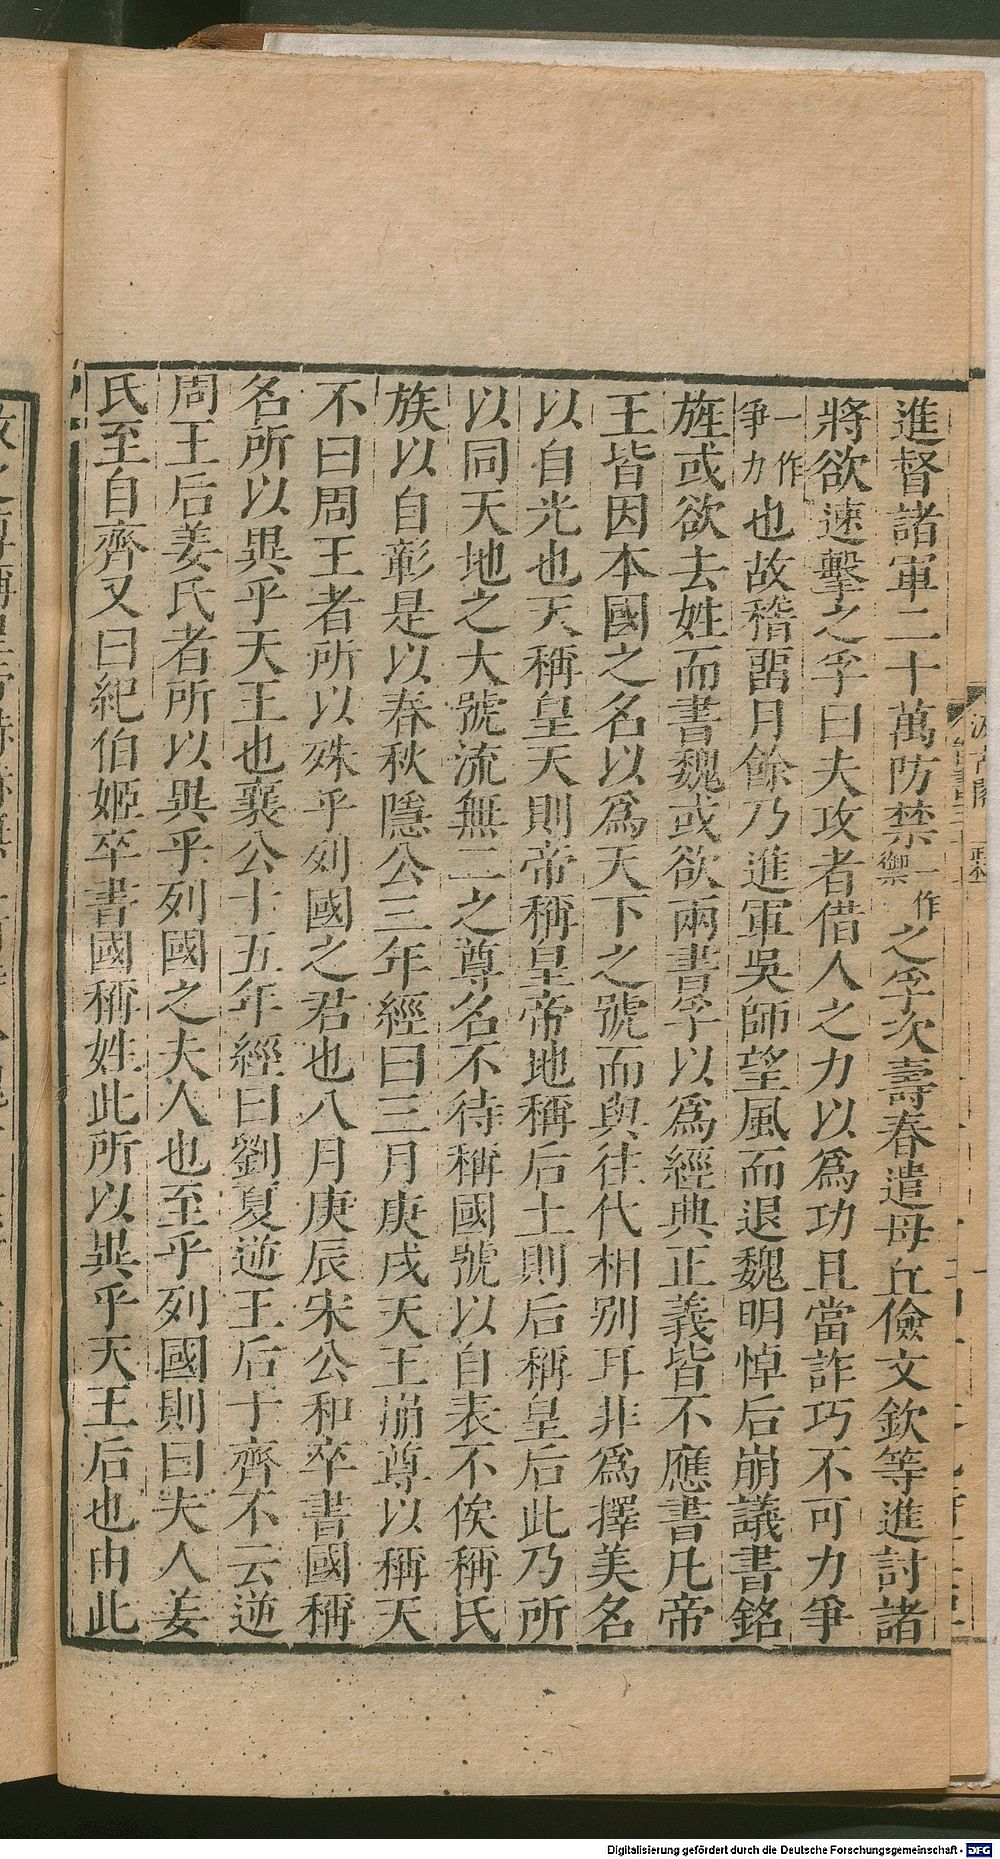 進督諸軍二十萬防禁一作禦之孚次壽春遣毋丘儉文欽等進討諸
將欲速擊之孚曰夫攻者借人之力以爲功且當詐巧不可力爭
一作爭力也故稽畱月餘乃進軍吳師望風而退魏明悼后崩議書銘
旌或欲去姓而書魏或欲兩書孚以爲經典正義皆不應書凡帝
王皆因本國之名以爲天下之號而與往代相別耳非爲擇美名
以自光也天稱皇天則帝稱皇帝地稱后土則后稱皇后此乃所
以同天地之大號流無二之尊名不待稱國號以自表不俟稱氏
族以自彰是以春秋隱公三年經曰三月庚戌天王崩尊以稱天
不曰周王者所以殊乎列國之君也八月庚辰宋公和卒書國稱
名所以異乎天王也襄公十五年經曰劉夏逆王后于齊不云逆
周王后姜氏者所以異乎列國之夫人也至乎列國則曰夫人姜
氏至自齊又曰紀伯姬卒書國稱姓此所以異乎天王后也由此
Digitalisierung gefördert durch die Deutsche Forschungsgemeinschaft - DFG